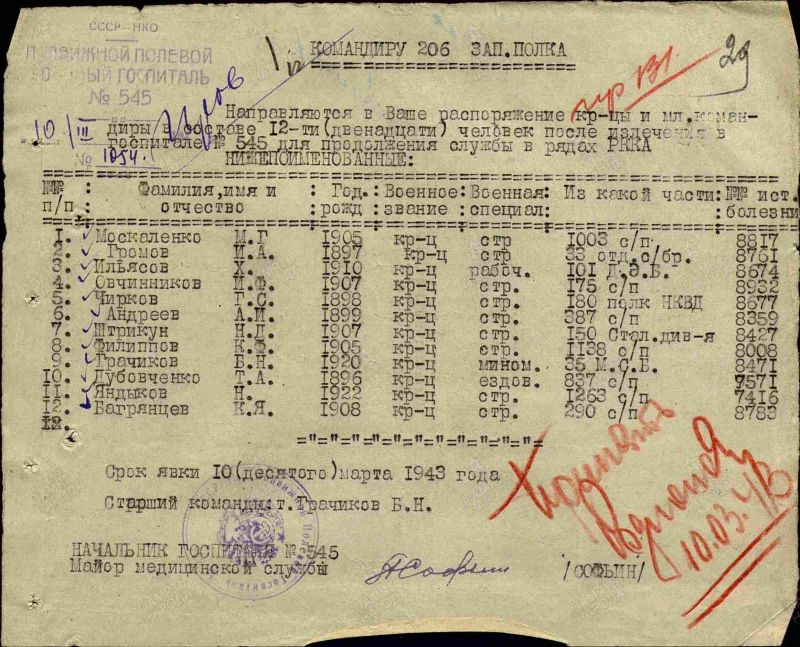 СССР-НКО
ПОДВИЖНОЙ ПОЛЕВОЙ
ГОСПИТАЛЬ
№ 545
10/III
№ 1054.
КОМАНДИРУ 206 ЗАП.ПОЛКА
пр 131
29
Направляются в Ваше распоряжение кр-цы и мл.коман-
диры в составе 12-ти(двенадцати) человек после излечения в
госпитале № 545 для продолжения службы в рядах РККА
НИЖЕПОИМЕНОВАННЫЕ:
№№ : Фамилия,имя и : Год. : Военное : Военная : Из какой части: №№ ист.
п/п : отчество : рожд : звание : специал: болезни
1. Москаленко М.Г 1905 кр-ц стр 1003 с/п. 8817
2. Громов И.А. 1897 кр-ц стр 33 отд.с/бр. 8761
3. Ильясов Х. 1910 кр-ц рабоч. 101 Д.Э.Б. 8674
4. Овчинников И.Ф. 1907 кр-ц стр. 175 с/п 8932
5. Чирков Г.С. 1898 кр-ц стр. 180 полк НКВД 8677
6. Андреев А.И. 1899 кр-ц стр. 387 с/п 8359
7. Штрикун Н.Д. 1907 кр-ц стр. 150 Стал.див-я 8427
8. Филиппов К.Ф. 1905 кр-ц стр. 1138 с/п 8008
9. Грачиков Б.Н. 1920 кр-ц мином. 35 М.С.Б. 8471
10. Дубовченко Т.А. 1896 кр-ц ездов. 837 с/п 7571
11. Яндыков Н. 1922 кр-ц стр. 1263 с/п 7416
12. Багрянцев К.Я. 1908 кр-ц стр. 290 с/п 8783
Срок явки 10(десятого)марта 1943 года
Старший команды:т.Грачиков Б.Н.
НАЧАЛЬНИК ГОСПИТАЛЯ № 545
Майор медицинской службы /СОФЬИН/
10.03.43